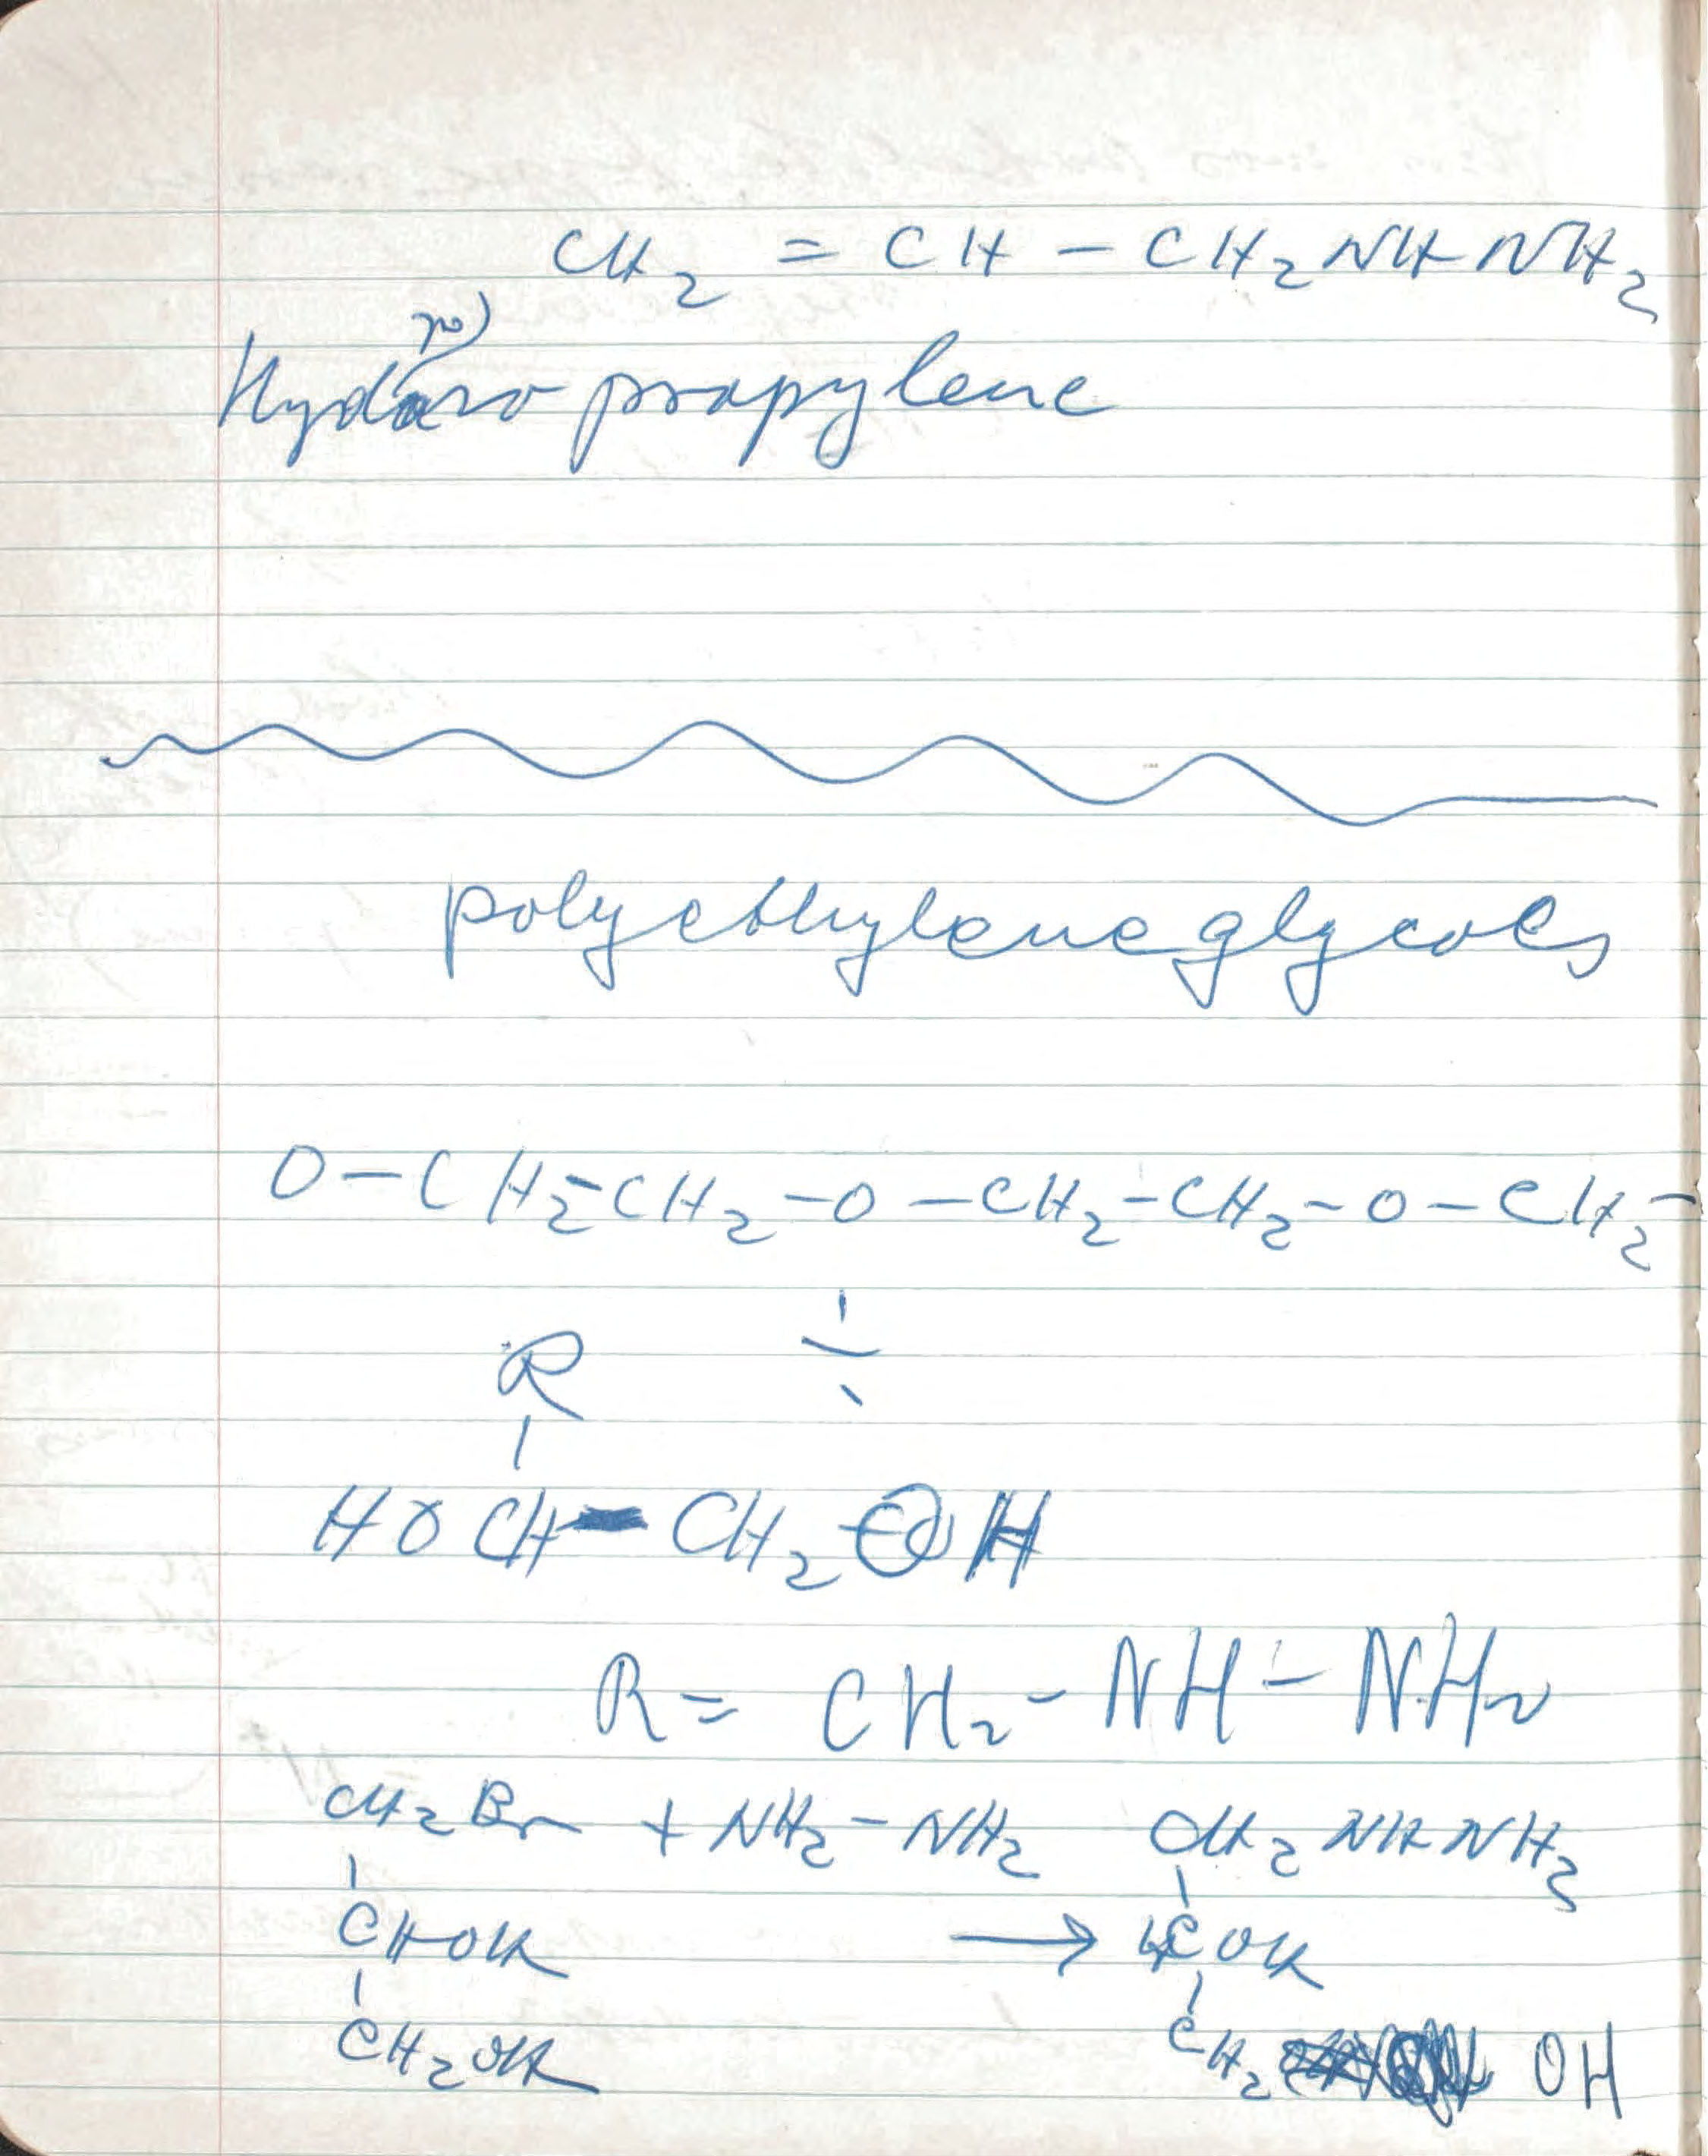 CH2 = CH - CH2NHNH2
Hydrazo propylene
polyethylene glycols
O-CH2-CH2-O-CH2-CH2-O-CH2-
R
HOCH-CH2OH
R= CH2-NH-NH2
CH2Br + NH2-NH2 CH2NHNH2
CHOH → HCOH
CH2OH CH2 OH